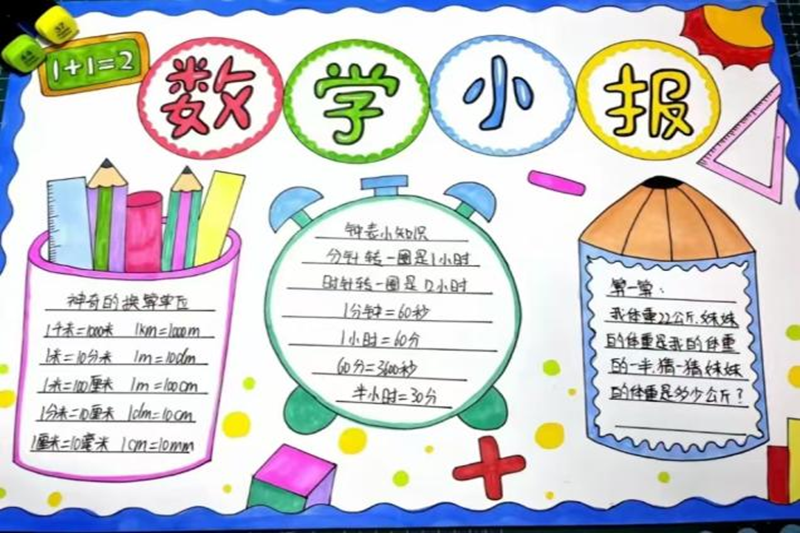 1+1=2
数学小报
神奇的换算单位
1千米=1000米 1km=1000m
1米=10分米 1m=10dm
1米=100厘米 1m=100cm
1分米=10厘米 1dm=10cm
1厘米=10毫米 1cm=10mm
钟表小知识
分针转一圈是1小时
时针转一圈是12小时
1分钟=60秒
1小时=60分
60分=3600秒
半小时=30分
算一算:
我体重22公斤,妹妹
的体重是我的体重
的一半,猜一猜妹妹
的体重是多少公斤?